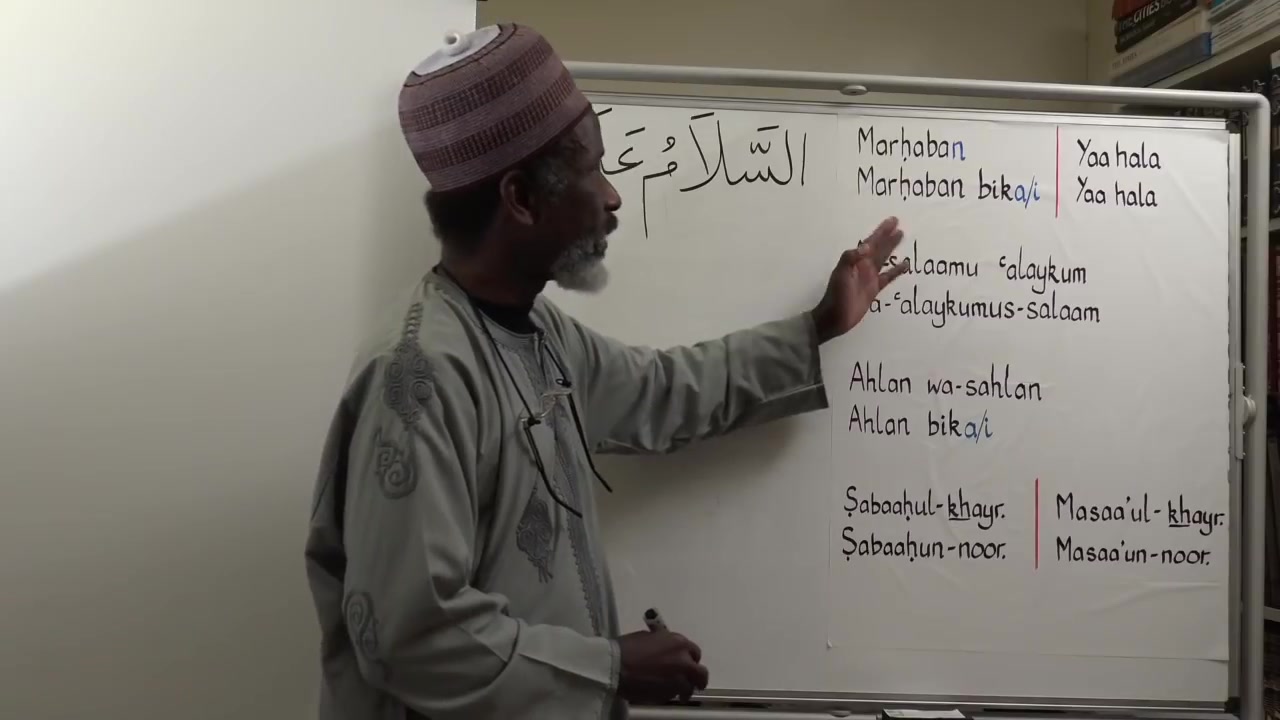 السَّلَامُ
Marḥaban
Marḥaban bika/i
Yaa hala
Yaa hala
salaamu ʿalaykum
ʿalaykumus-salaam
Ahlan wa-sahlan
Ahlan bika/i
Ṣabaaḥul-khayr.
Ṣabaaḥun-noor.
Masaa'ul-khayr.
Masaa'un-noor.